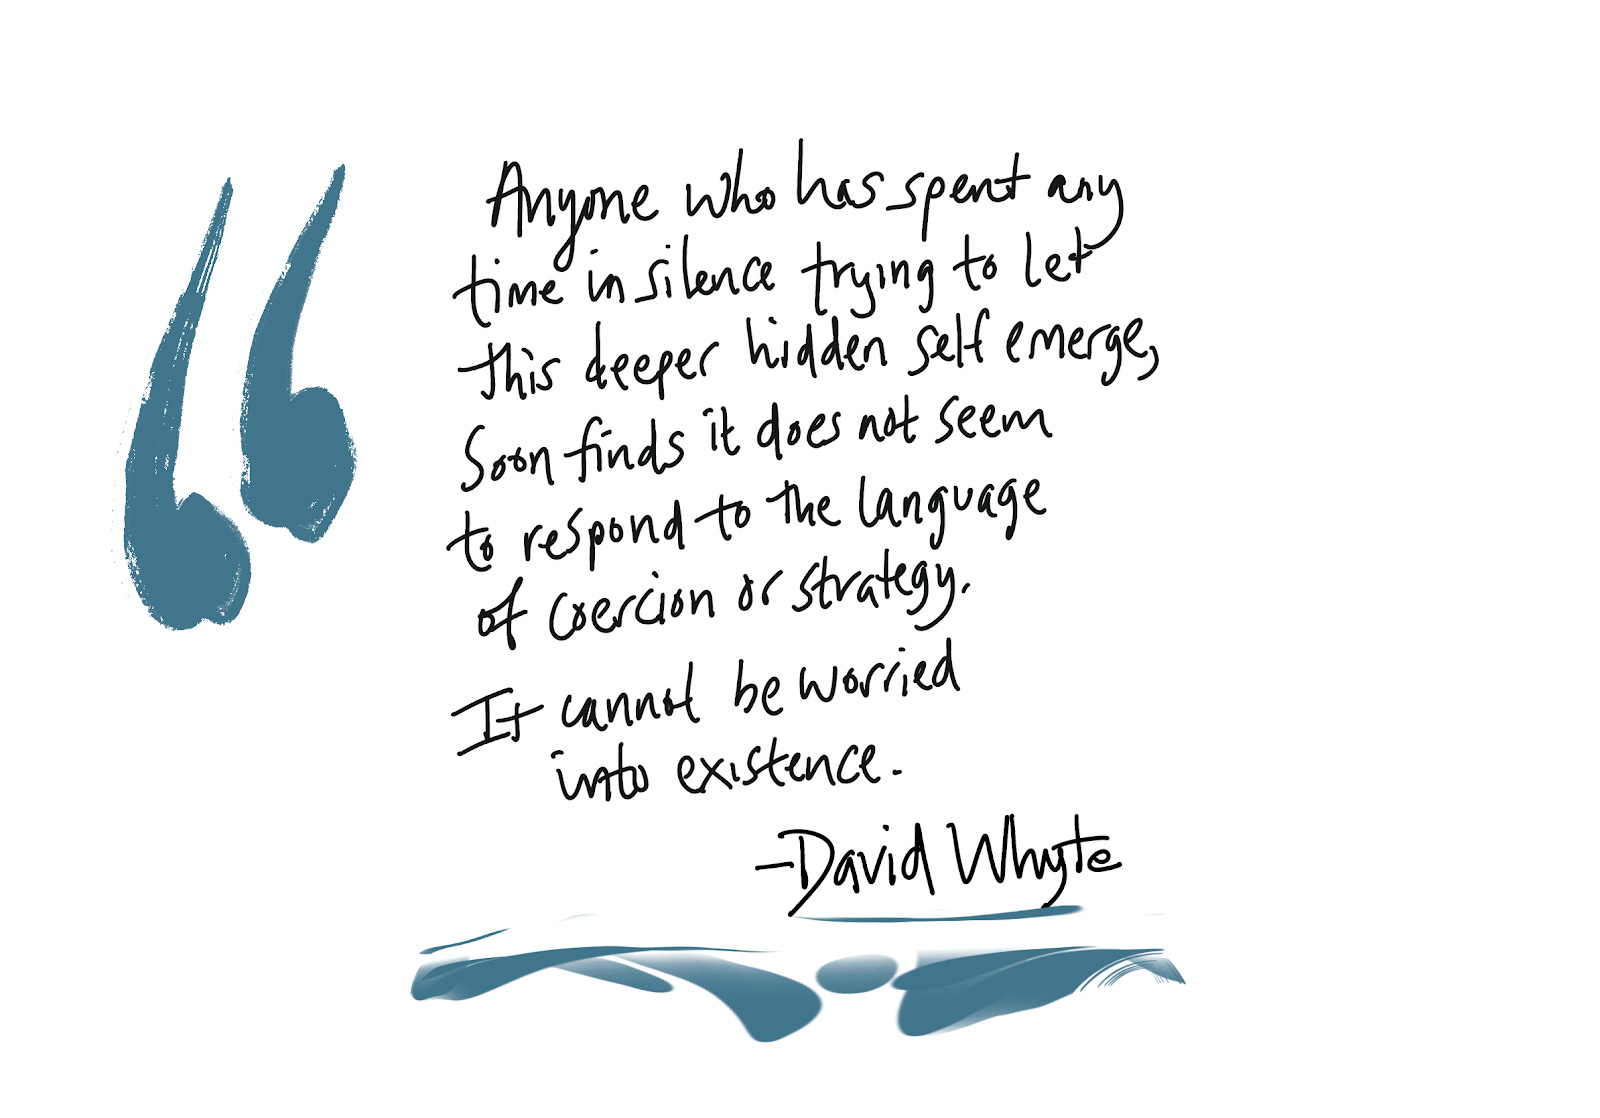 Anyone who has spent any
time in silence trying to let
this deeper hidden self emerge,
Soon finds it does not seem
to respond to the language
of coercion or strategy.
It cannot be worried
into existence.
-David Whyte